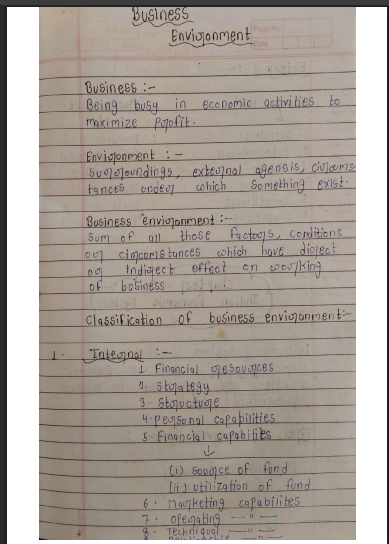 Business
Environment
Page No.
Date
Business :-
Being busy in economic activities to
maximize Porofit.
Environment : -
Surroundings, external agensis, circums-
tances under which something exist.
Business environment :-
Sum of all those factors, conditions
or circumstances which have direct
or Indirect effect on working
of business.
Classification of business environment:-
1. Internal :-
1. Financial resources
2. Strategy
3. Structure
4. Personal capabilities
5. Financial capabities
↓
(i) Source of fund
(ii) utilization of fund
6. Marketing capabilites
7. operating —"—
8. Technical —"—